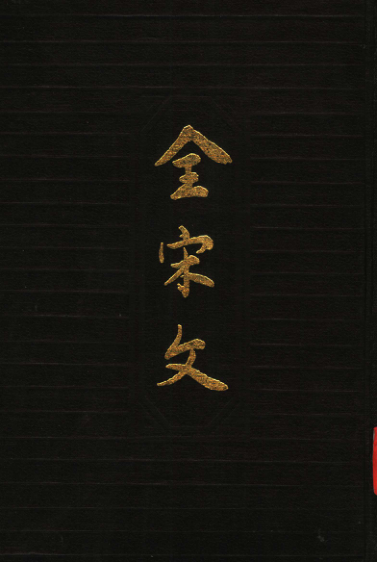 全宋文